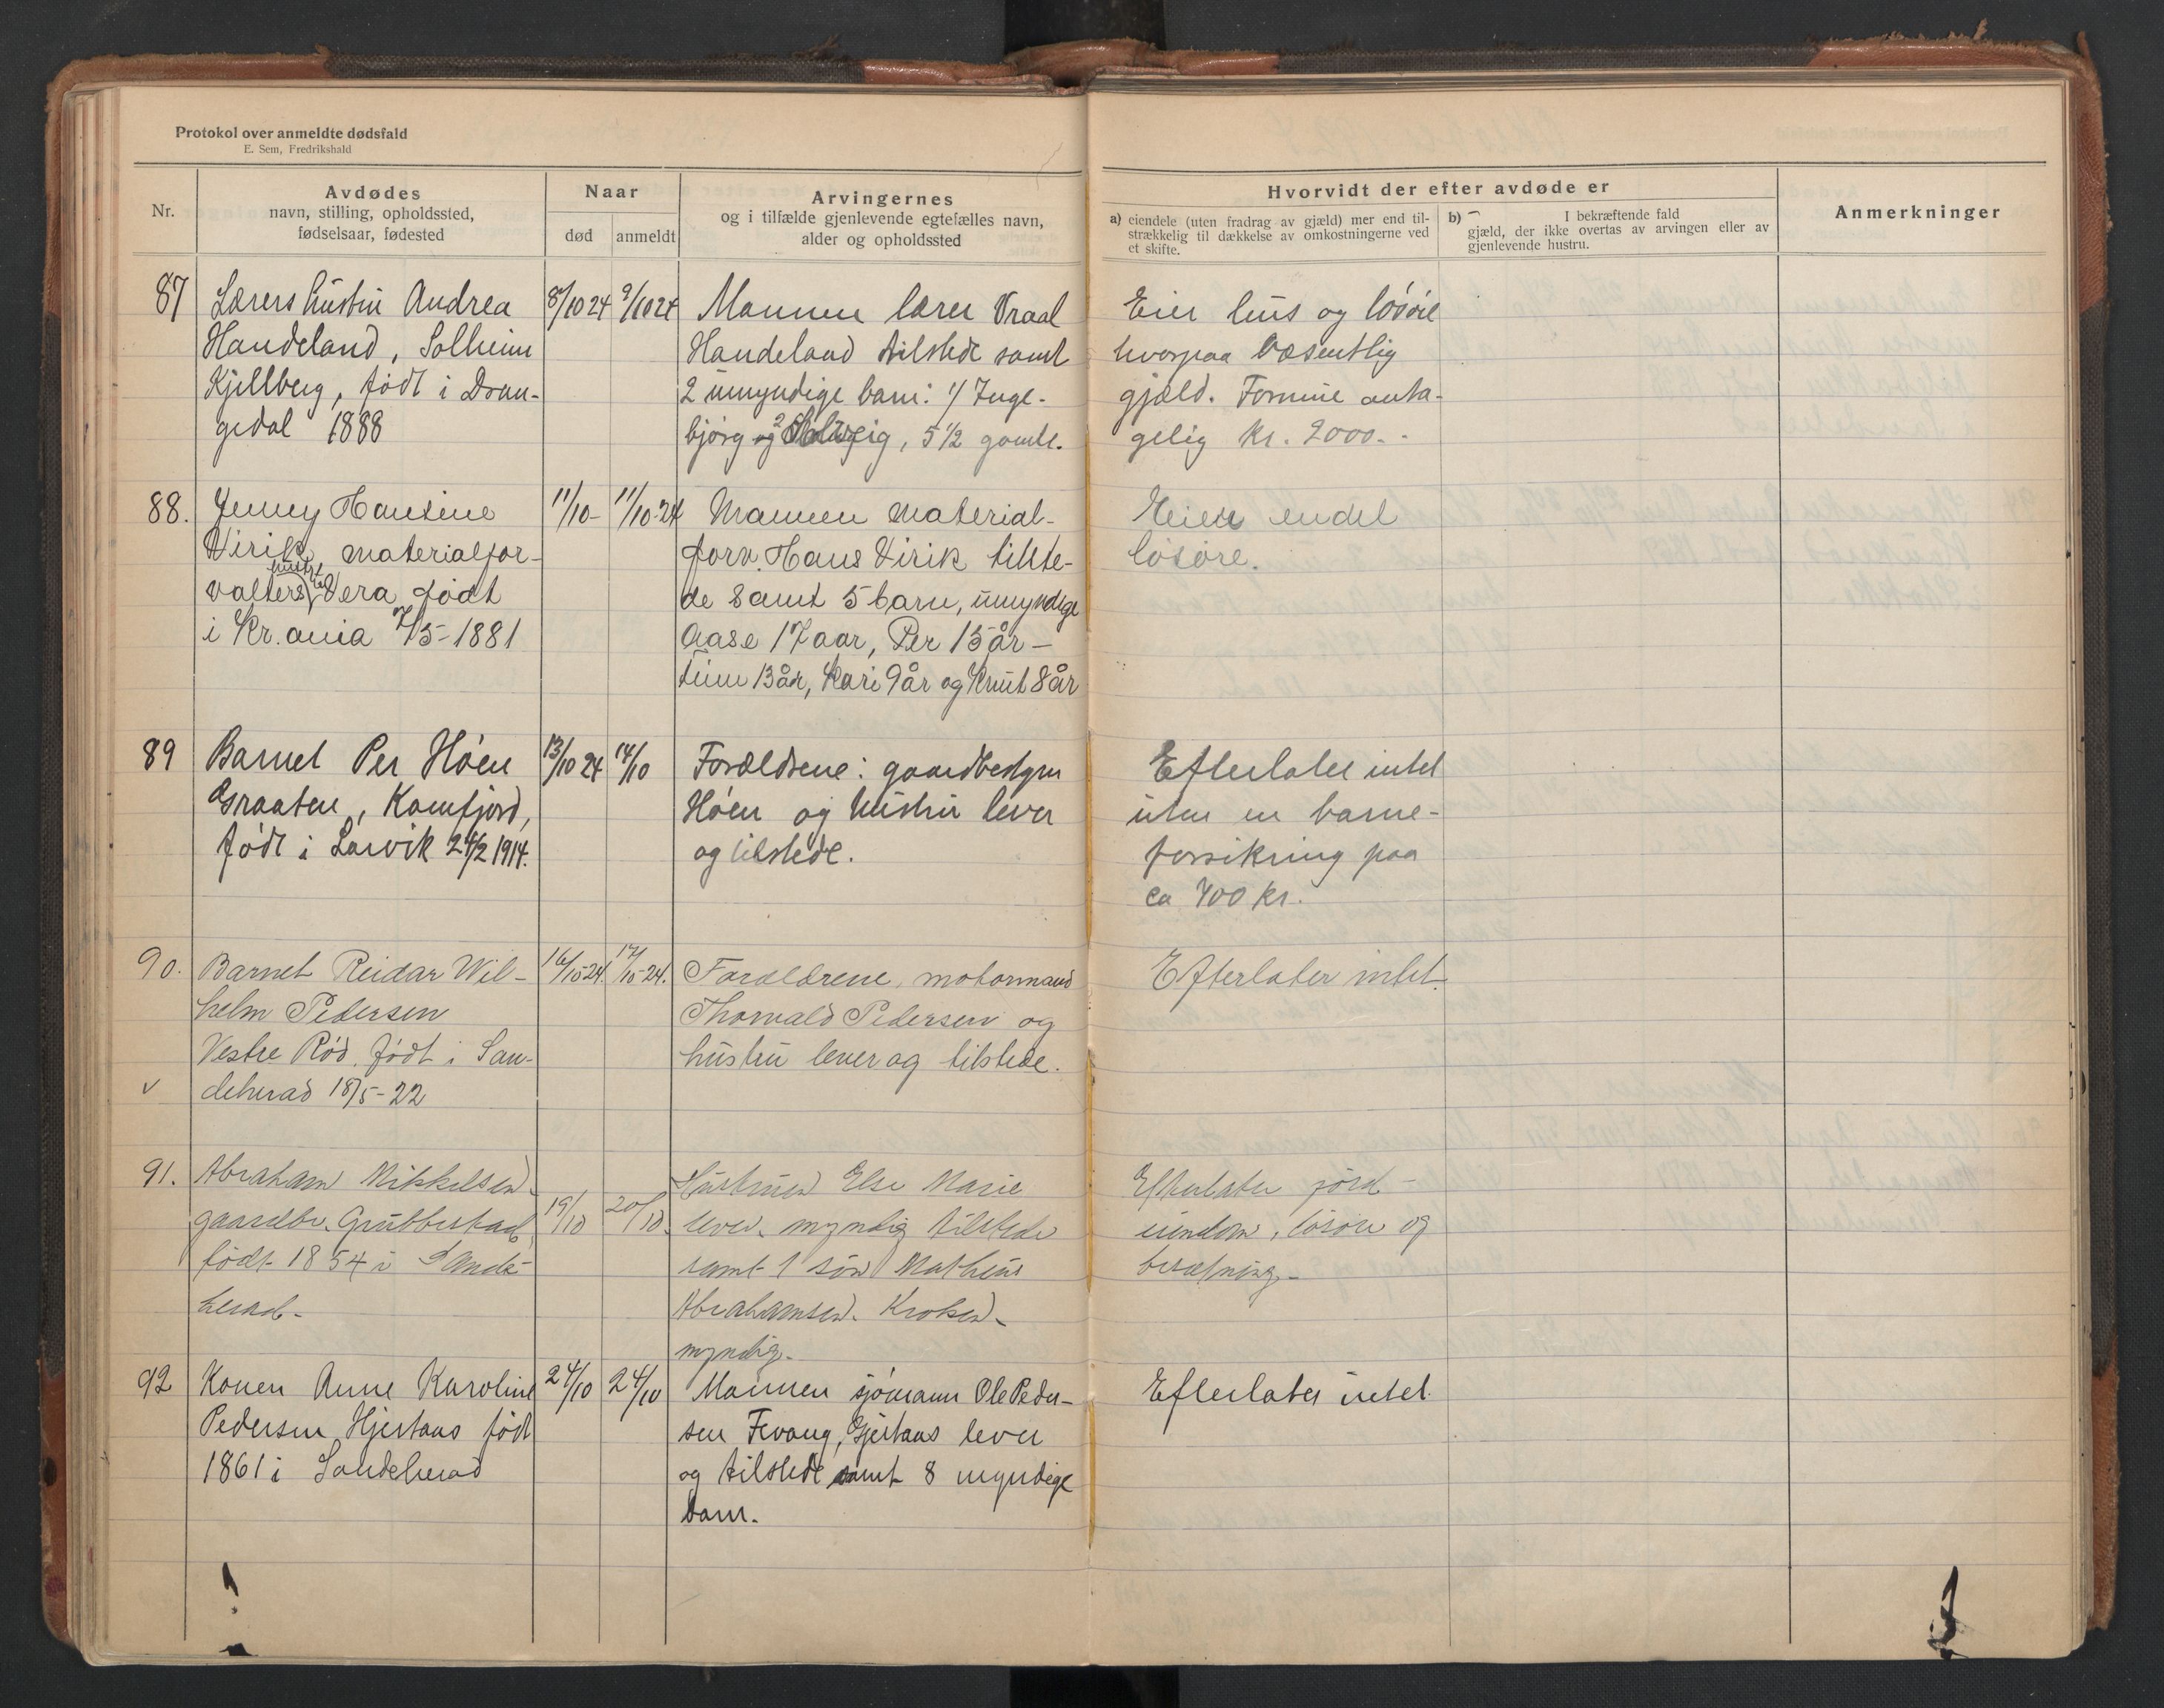 Protokol over anmeldte dødsfald
E. Sem, Fredrikshald
Nr.
Avdødes
navn, stilling, opholdssted,
fødselsaar, fødested
Naar
død
anmeldt
Arvingernes
og i tilfælde gjenlevende egtefælles navn,
alder og opholdssted
Hvorvidt der efter avdøde er
a) eiendele (uten fradrag av gjæld) mer end til-
strækkelig til dækkelse av omkostningerne ved
et skifte.
b) I bekræftende fald
gjæld, der ikke overtas av arvingen eller av
gjenlevende hustru.
Anmerkninger
87
Lærers hustru Andrea
Handeland, Solheim
Kjellberg, født i Dran-
gedal 1888
8/10 24
9/10 24
Mannen lærer Vraal
Handeland tilstede samt
2 umyndige barn: 1/ Inge-
bjørg og 2 Solveig, 5 1/2 gamle.
Eier hus og løsøre
hvorpaa væsentlig
gjæld. Formue anta-
gelig kr. 2000.-
88.
Jenny Hansine
Virik, materialfor-
valters hustru Vera født
i Kr.ania 7/5-1881
11/10-
11/10-24
Mannen material-
forv. Hans Virik tilste-
de samt 5 barn, umyndige
Aase 17 aar, Per 15 år -
Finn 13 år, Kari 9 år og Knut 8 år
Eier endel
løsøre.
89
Barnet Per Høen
Graaten, Kamfjord,
født i Larvik 24/2 1914.
13/10 24
14/10
Forældrene: gaardbestyrer
Høen og hustru lever
og tilstede.
Efterlater intet
uten en barne-
forsikring paa
ca 400 kr.
90.
Barnet Reidar Wil-
helm Pedersen
Vestre Rød. født i San-
deherad 18/5-22
v
16/10-24.
17/10-24.
Forældrene, motormand
Thorvald Pedersen og
hustru lever og tilstede.
Efterlater intet.
91.
Abraham Mikkelsen
gaardbr. Grubbestad
født 1854 i Sande-
herad-
19/10
20/10.
Hustruen Else Marie
lever. myndig tilstede
samt 1 søn Mathias
Abrahamsen. Kroken-
myndig-
Efterlater jord-
eiendom, løsøre og
besætning-
92
Konen Anne Karoline
Pedersen Hjertaas født
1861 i Sandeherad
24/10
24/10
Mannen sjømann Ole Peder-
sen Fevang, Gjertaas lever
og tilstede samt 8 myndige
barn.
Efterlater intet.